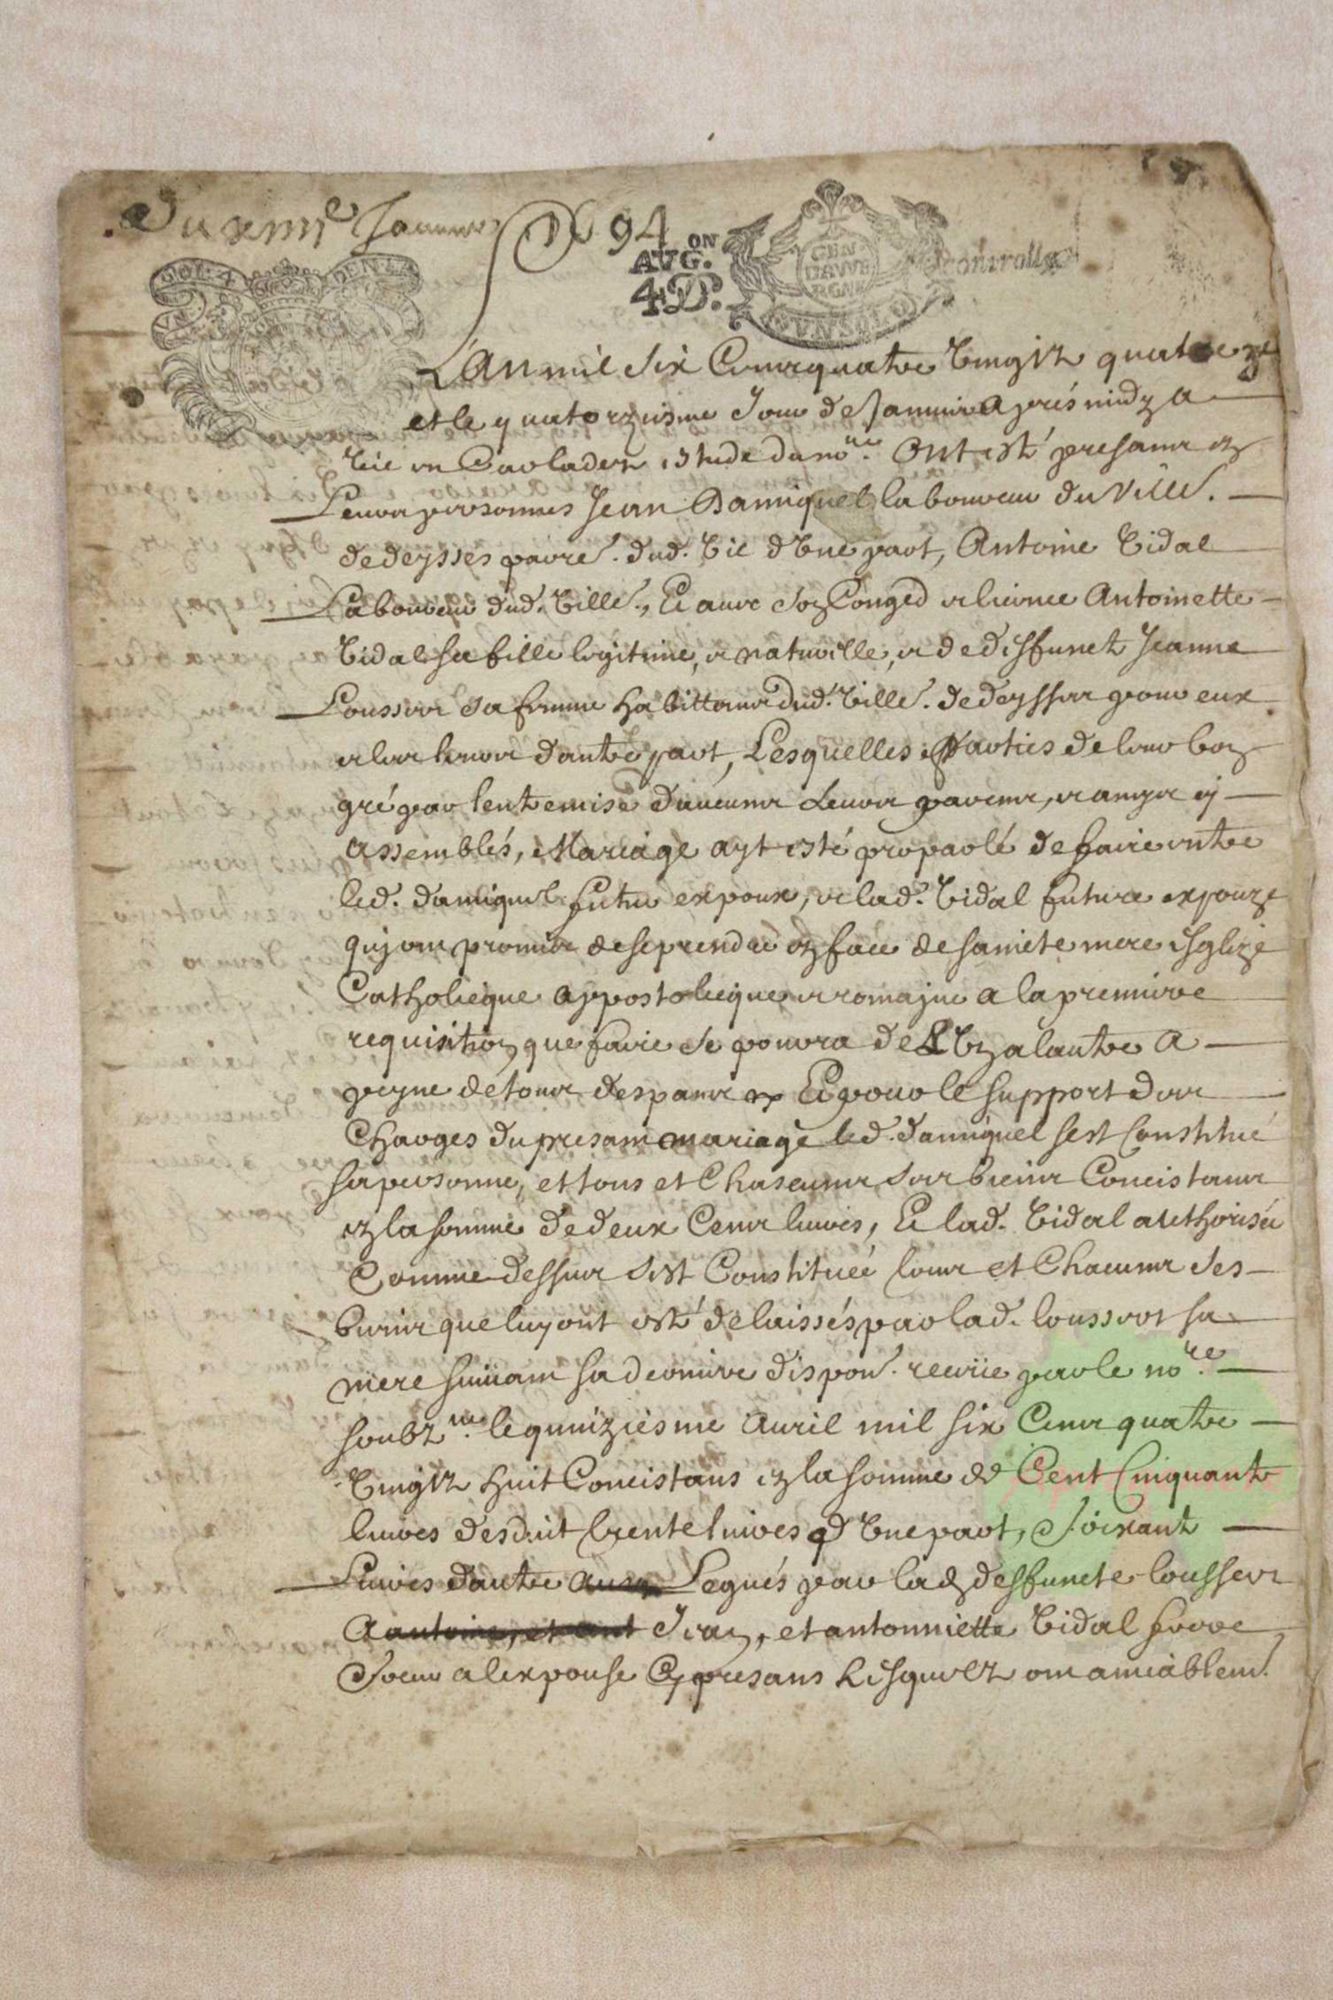 Du xiiiie Janvier 94
AUG.ON
4 D.
GEN
DAVVE
RGNE
VN SOL
controlle
VN SOL 4 DEN
L'An mil six Cens quatre vingtz quatorze
et le quatorziesme Jour de Janvier Apres midy a
Vic en Carlades estude du nore. Ont esté presans en
Leurs personnes Jean Damiquel laboureur du Ville.
de deysses parre. dud. Vic d'Une part, Antoine Vidal
Laboureur dud. Ville., Et avec son Conged et licence Antoinette
Vidal sa fille legitime, et naturelle, et de deffunct Jeanne
Lousser sa femme habittans dud. Ville. de deysses pour eux
et les leurs d'autre part, Lesquelles Parties de leur bon
gré par lentremise d'aucuns Leurs parens, et amys ey
Assemblés, Mariage ayt esté proparlé de faire entre
led. damiquel futur expoux, et lad. Vidal future expouze
quy ont promis de se prendre en face de saincte mere Esglize
Catholicque Appostolicque et romajne a la premiere
requisition que faire se pourra de L'Un a lautre A
peyne de tous despans Et pour le support des
Charges du presant mariage led. damiquel sest Constitué
sa personne, et tous et Chascuns ses biens Concistans
en la somme de deux Cens livres, Et lad. Vidal authorisée
Comme dessus sest Constituée tous et Chacuns ses
biens que luy ont esté delaissés par lad. lousser sa
mere suivant sa derniere dispon. receue par le nore.
soubzne. le quinziesme Auril mil six Cens quatre
Vingtz huit Concistans en la somme de Cent Cinquante
livres desduit trente livres d'Une part, Soixante
Livres d'autre Legués par lad. deffuncte lousser
Jean, et antonniette Vidal frere
Soeur a lexpouse Cy presans Lesquelz ont amiablem.